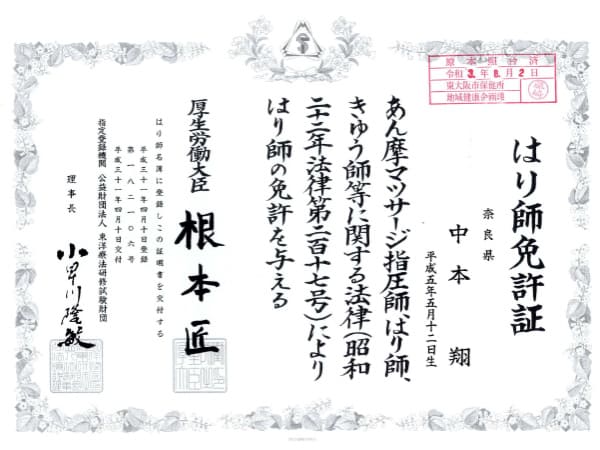 原本照合済
令和3.年8.月2日
東大阪市保健所
地域健康企画課
はり師免許証
奈良県
中本 翔
平成五年五月十二日生
あん摩マッサージ指圧師、はり師、
きゅう師等に関する法律(昭和
二十二年法律第二百十七号)により
はり師の免許を与える
厚生労働大臣 根本匠
はり師名簿に登録しこの証明書を交付する
平成三十一年四月十日登録
第一八二一〇六号
平成三十一年四月十日交付
指定登録機関 公益財団法人 東洋療法研修試験財団
理事長 小早川隆敏